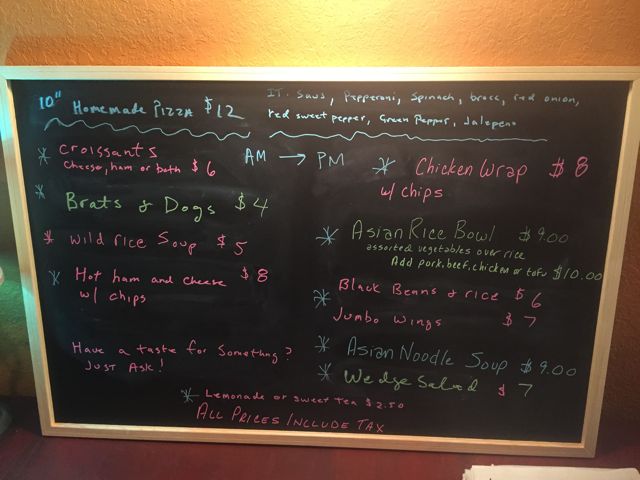 10" Homemade Pizza $12
IT. Saus, Pepperoni, Spinach, brocc, red onion,
red sweet pepper, Green Pepper, Jalepeno
Croissants
Cheese, ham or both $6
AM → PM
Brats & Dogs $4
Wild rice Soup $5
Hot ham and cheese $8
w/ chips
Have a taste for Something?
Just Ask!
Chicken Wrap $8
w/ chips
Asian Rice Bowl $9.00
assorted vegetables over rice
Add pork, beef, chicken or tofu $10.00
Black Beans & rice $6
Jumbo Wings $7
Asian Noodle Soup $9.00
Wedge Salad $7
Lemonade or Sweet Tea $2.50
All Prices Include Tax